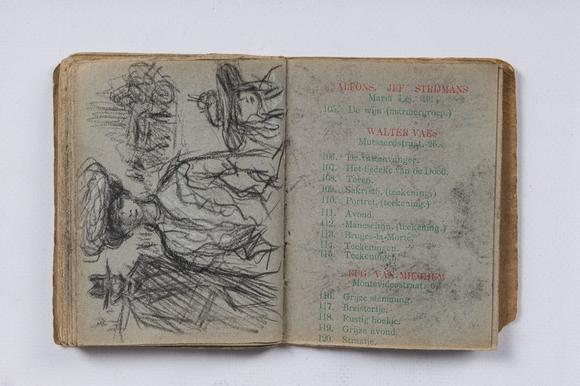 ALFONS. JEF STRIJMANS
Maria
105. De wijn (marmergroep.)
WALTER VAES
Mutsaerdstraat,
106.
107. Het liedeke van de Dood.
108. Toren.
109. Sakristij, (teekening.)
110. Portret, (teekening.)
111. Avond.
112. Maneschijn, (teekening.)
113. Bruges-la-Morte.
114. Teekeningen.
115. Teekeningen.
EUG. VAN MIEGHEM
Montevideostraat,
116. Grijze stemming.
117. Breistertje.
118. Rustig hoekje.
119. Grijze avond.
120. Straatje.